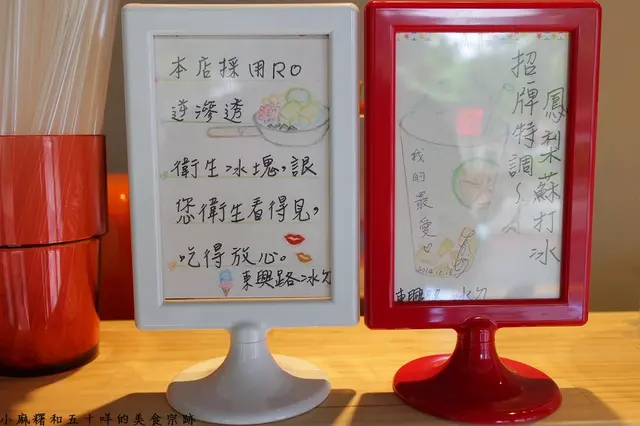 本店採用RO
逆滲透
衛生冰塊,讓
您衛生看得見,
吃得放心。
東興路冰勺
招牌特調~
鳳梨蘇打冰
我的最愛
東興 冰勺
小麻糬和五十咩的美食宗跡